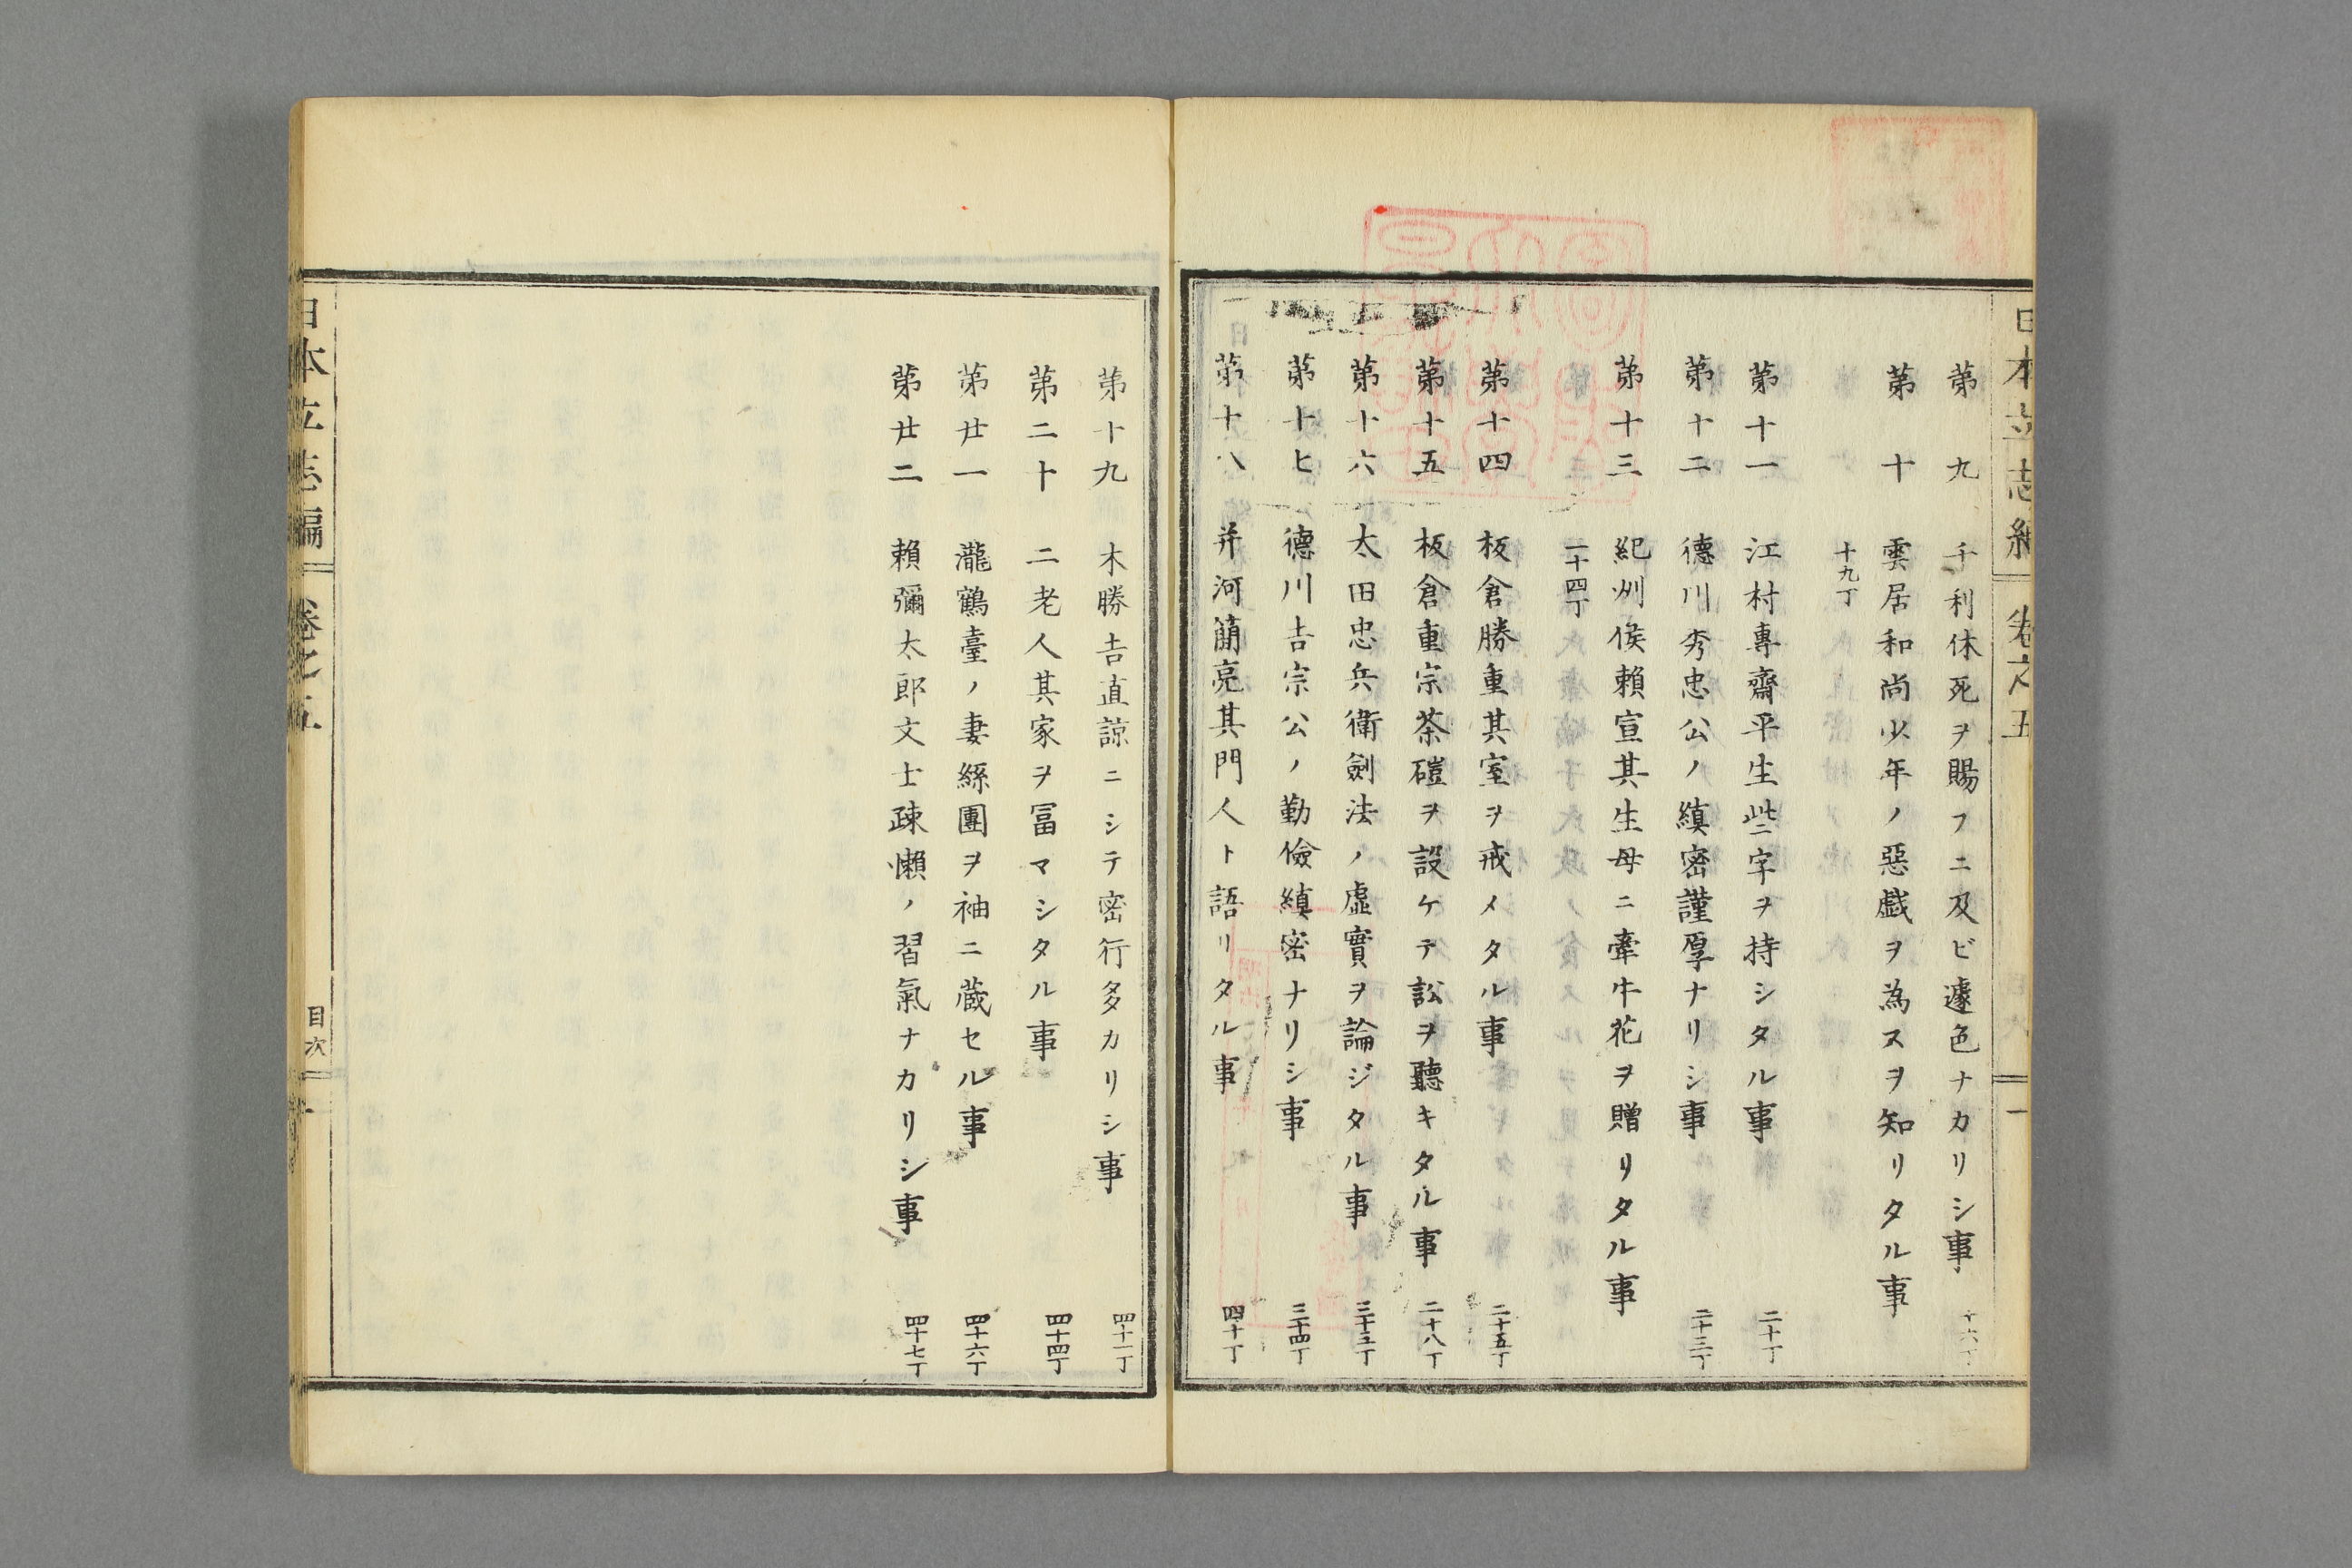 日本立志編 卷之五
一
第九 千利休死ヲ賜フニ及ビ遽色ナカリシ事 十六丁
第十 雲居和尚少年ノ惡戯ヲ為スヲ知リタル事
十九丁
第十一 江村專齋平生些二字ヲ持シタル事 二十丁
第十二 德川秀忠公ノ縝密謹厚ナリシ事 二十三丁
第十三 紀州侯賴宣其生母ニ牽牛花ヲ贈リタル事
二十四丁
第十四 板倉勝重其室ヲ戒メタル事 二十五丁
第十五 板倉重宗茶磑ヲ設ケテ訟ヲ聽キタル事 二十八丁
第十六 太田忠兵衛劍法ノ虛實ヲ論ジタル事 三十三丁
第十七 德川吉宗公ノ勤儉縝密ナリシ事 三十四丁
第十八 并河簡亮其門人ト語リタル事 四十丁
第十九 木勝吉直諒ニシテ密行多カリシ事 四十一丁
第二十 二老人其家ヲ冨マシタル事 四十四丁
第廿一 瀧鶴臺ノ妻絲團ヲ袖ニ藏セル事 四十六丁
第廿二 賴彌太郎文士疎懶ノ習氣ナカリシ事 四十七丁
日本立志編 卷之五 目次